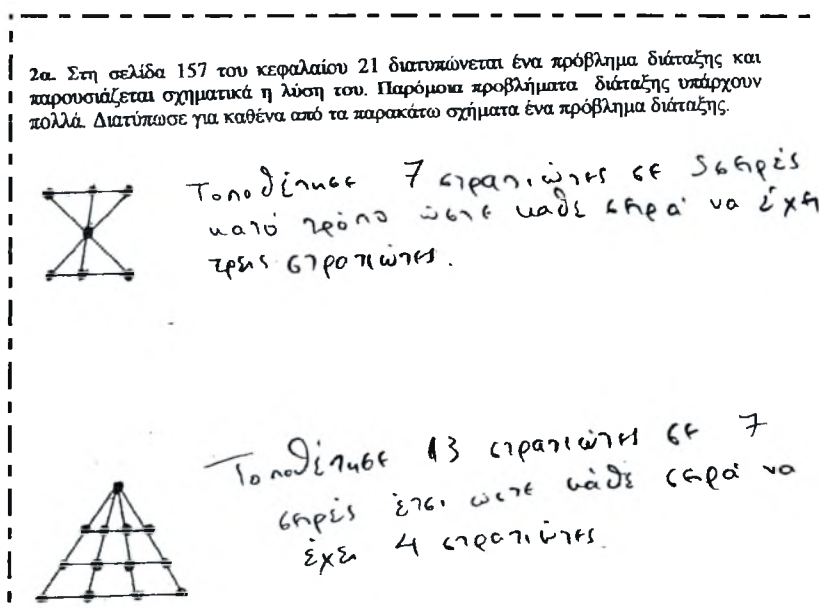 2α. Στη σελίδα 157 του κεφαλαίου 21 διατυπώνεται ένα πρόβλημα διάταξης και
παρουσιάζεται σχηματικά η λύση του. Παρόμοια προβλήματα διάταξης υπάρχουν
πολλά. Διατύπωσε για καθένα από τα παρακάτω σχήματα ένα πρόβλημα διάταξης.
Τοποθέτησε 7 στρατιώτες σε 5 σειρές
κατά τρόπο ώστε κάθε σειρά να έχει
τρεις στρατιώτες.
Τοποθέτησε 13 στρατιώτες σε 7
σειρές έτσι ώστε κάθε σειρά να
έχει 4 στρατιώτες.